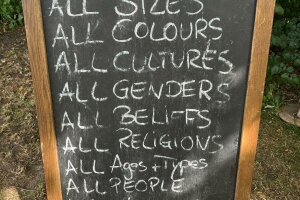 ALL SIZES
ALL COLOURS
ALL CULTURES
ALL GENDERS
ALL BELIFFS
ALL RELIGIONS
ALL Ages + Types
ALL PEOPLE